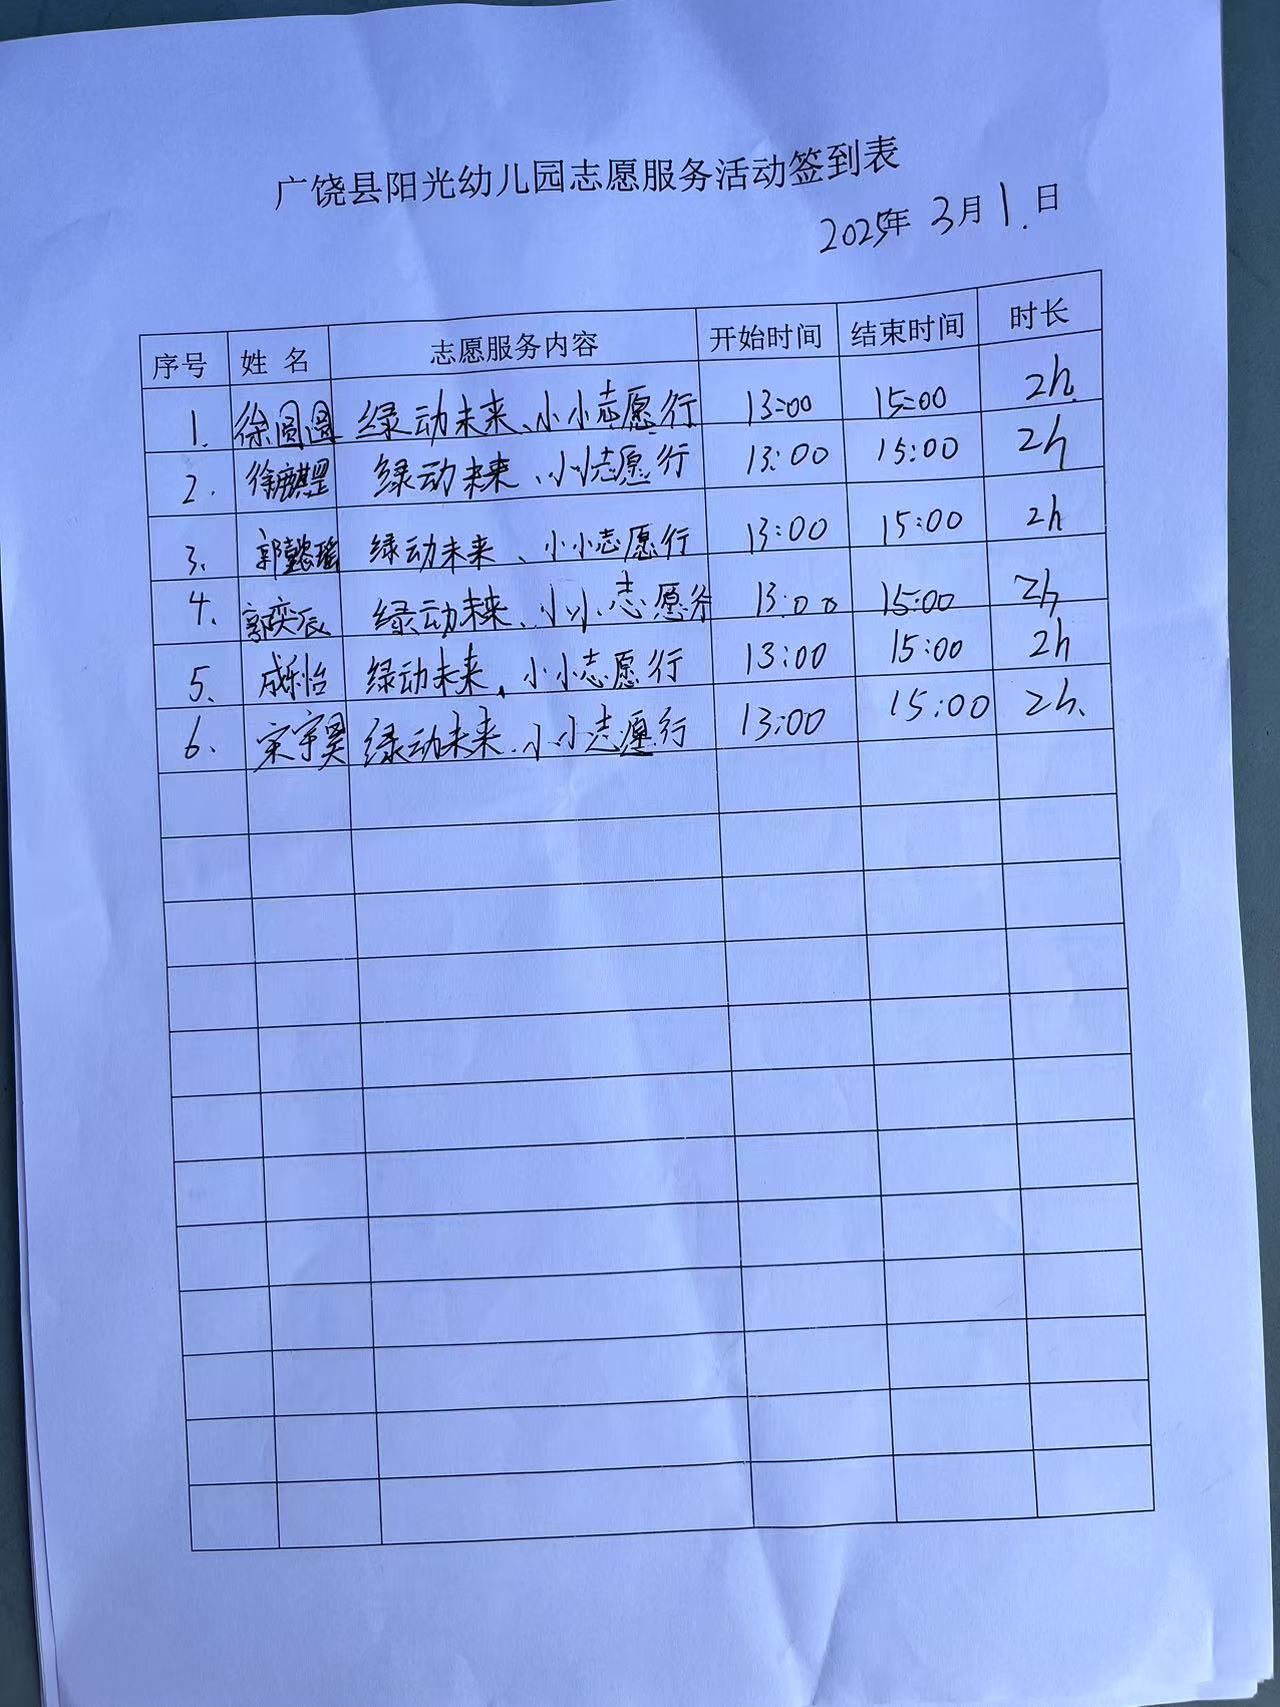 广饶县阳光幼儿园志愿服务活动签到表
2025年 3月 1.日
序号 姓 名 志愿服务内容 开始时间 结束时间 时长
1. 徐圆圆 绿动未来、小小志愿行 13:00 15:00 2h.
2. 徐麒罡 绿动未来、小小志愿行 13:00 15:00 2h
3. 郭懿瑶 绿动未来、小小志愿行 13:00 15:00 2h
4. 郭奕辰 绿动未来、小小志愿行 13:00 15:00 2h
5. 成乐怡 绿动未来、小小志愿行 13:00 15:00 2h
6. 宋宇昊 绿动未来、小小志愿行 13:00 15:00 2h.